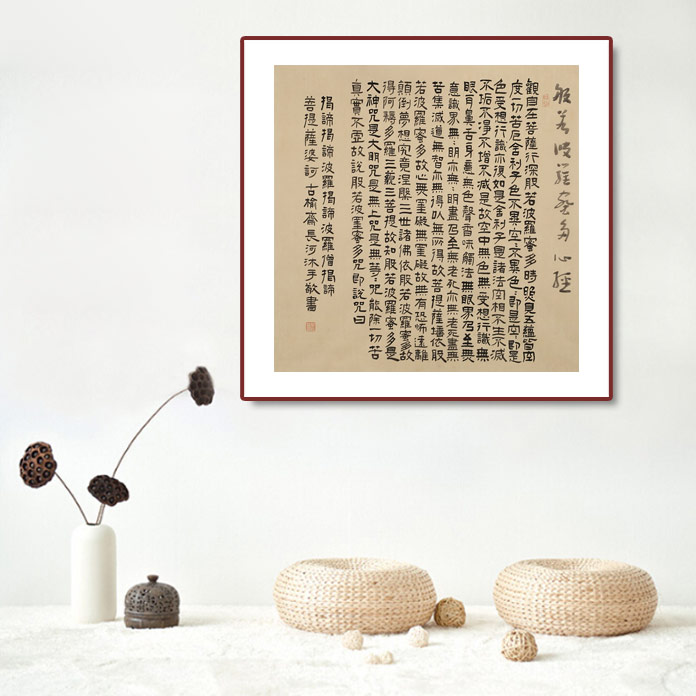 般若波羅蜜多心經
觀自在菩薩行深般若波羅蜜多時照見五蘊皆空
度一切苦厄舍利子色不異空〻不異色〻即是空〻即是
色受想行識亦復如是舍利子是諸法空相不生不滅
不垢不淨不增不減是故空中無色無受想行識無
眼耳鼻舌身意無色聲香味觸法無眼界乃至無
意識界無〻明亦無〻明盡乃至無老死亦無老死盡無
苦集滅道無智亦無得以無所得故菩提薩埵依般
若波羅蜜多故心無罣礙無罣礙故無有恐怖遠離
顛倒夢想究竟涅槃三世諸佛依般若波羅蜜多故
得阿耨多羅三藐三菩提故知般若波羅蜜多是
大神咒是大明咒是無上咒是無等〻咒能除一切苦
真實不虛故說般若波羅蜜多咒即說咒曰
揭諦揭諦波羅揭諦波羅僧揭諦
菩提薩婆訶 古榆齋長河沐手敬書